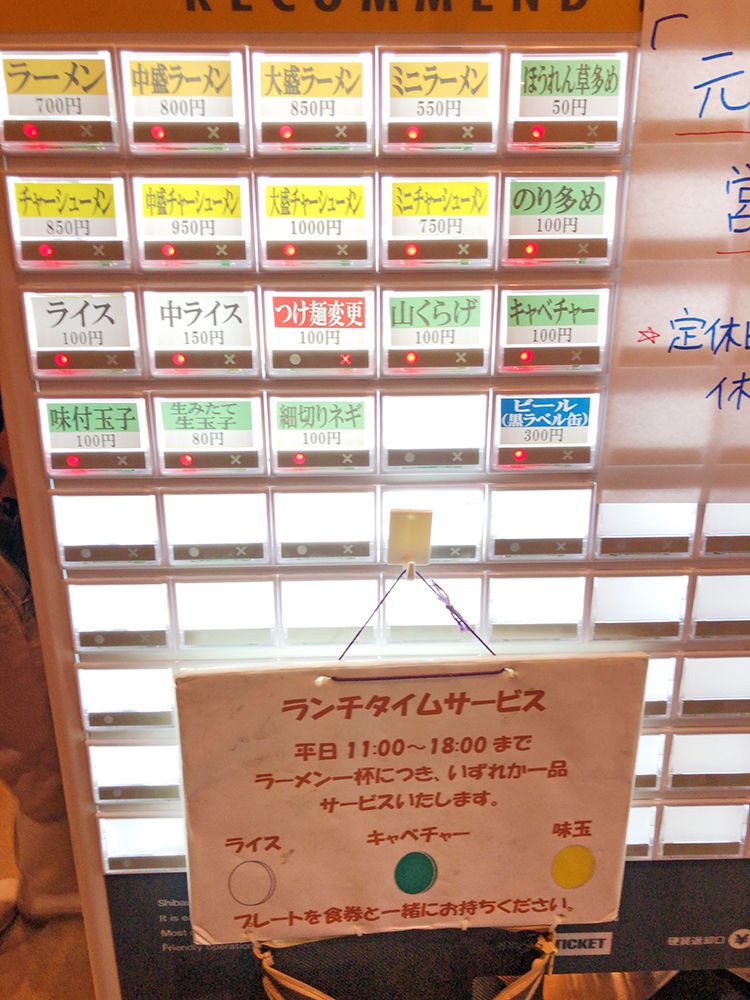 RECOMMEND
ラーメン
700円
中盛ラーメン
800円
大盛ラーメン
850円
ミニラーメン
550円
ほうれん草多め
50円
チャーシューメン
850円
中盛チャーシューメン
950円
大盛チャーシューメン
1000円
ミニチャーシューメン
750円
のり多め
100円
ライス
100円
中ライス
150円
つけ麺変更
100円
山くらげ
100円
キャベチャー
100円
味付玉子
100円
生みたて
生玉子
80円
細切りネギ
100円
ビール
(黒ラベル缶)
300円
「元
営
☆定休日
休
ランチタイムサービス
平日 11:00〜18:00 まで
ラーメン一杯につき、いずれか一品
サービスいたします。
ライス
キャベチャー
味玉
プレートを食券と一緒にお持ちください。
Shiba
It is e
Most
Friendly operation
TICKET